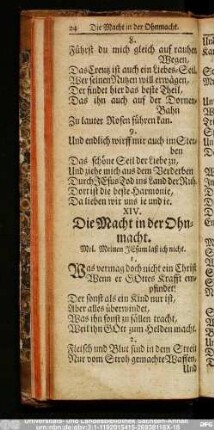 24 Die Macht in der Ohnmacht.
8.
Führst du mich gleich auf rauhen
Wegen,
Das Creutz ist auch ein Liebes-Seil,
Wer seinen Nutzen will erwägen,
Der findet hier das beste Theil,
Das ihn auch auf der Dornen-
Bahn
Zu lauter Rosen führen kan.
9.
Und endlich wirff mir auch im Ster-
ben
Das schöne Seil der Liebe zu,
Und ziehe mich aus dem Verderben
Durch JEsus Tod ins Land der Ruh,
Dort ist die beste Harmonie,
Da lieben wir uns ie und ie.
XIV.
Die Macht in der Ohn-
macht.
Mel. Meinen JEsum laß ich nicht.
1.
Was vermag doch nicht ein Christ
Wenn er GOttes Krafft em-
pfindet!
Der sonst als ein Kind nur ist,
Aber alles überwindet,
Was ihn sonst zu fällen tracht,
Weil ihn GOtt zum Helden macht.
2.
Fleisch und Blut sind in dem Streit
Nur vom Stroh gemachte Waffen,
Und